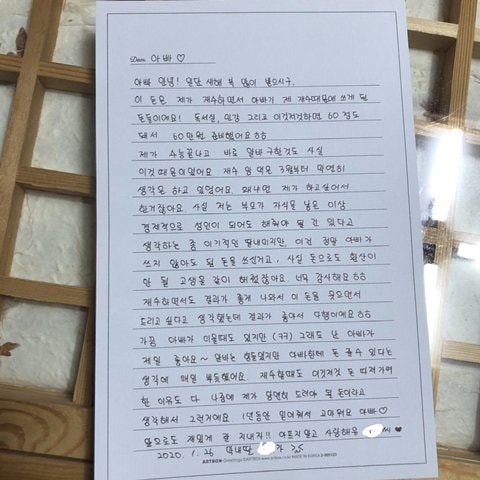 Dear. 아빠 ♡
아빠 안녕! 일단 새해 복 많이 받으시구,
이 돈은 제가 재수하면서 아빠가 제 재수때문에 쓰게 된
돈들이에요! 독서실, 인강 그리고 이것저것하면 60 정도
돼서 60만원 준비했어요ㅎㅎ
제가 수능끝나고 바로 알바 구한것도 사실
이것 때문이었어요 재수 맘 먹은 3월부터 막연히
생각은 하고 있었어요. 왜냐면 제가 하고싶어서
한거잖아요 사실 저는 부모가 자식을 낳은 이상
경제적으로 성인이 되어도 해줘야 될 건 있다고
생각하는 좀 이기적인 딸내미지만, 이건 정말 아빠가
쓰지 않아도 될 돈을 쓰신거고, 사실 돈으로도 환산이
안 될 고생을 같이 해줬잖아요. 너무 감사해요ㅎㅎ
재수하면서도 결과가 좋게 나와서 이 돈을 웃으면서
드리고싶다고 생각했는데 결과가 좋아서 다행이에요ㅎㅎ
가끔 아빠가 미울때도 있지만 (ㅋㅋ) 그래도 난 아빠가
제일 좋아요~ 알바는 힘들었지만 아빠한테 돈 줄수 있다는
생각에 매일 뿌듯했어요. 재수할때도 이것저것 돈 따져가며
한 이유도 다 나중에 제가 당연히 드려야 될 돈이라고
생각해서 그런거에요. 1년동안 믿어줘서 고마워요 아빠♡
앞으로도 재밌게 잘 지내자!! 아프지말고 사랑해우 씨 ♥
2020. 1. 26 막내딸 가
ARTBOX